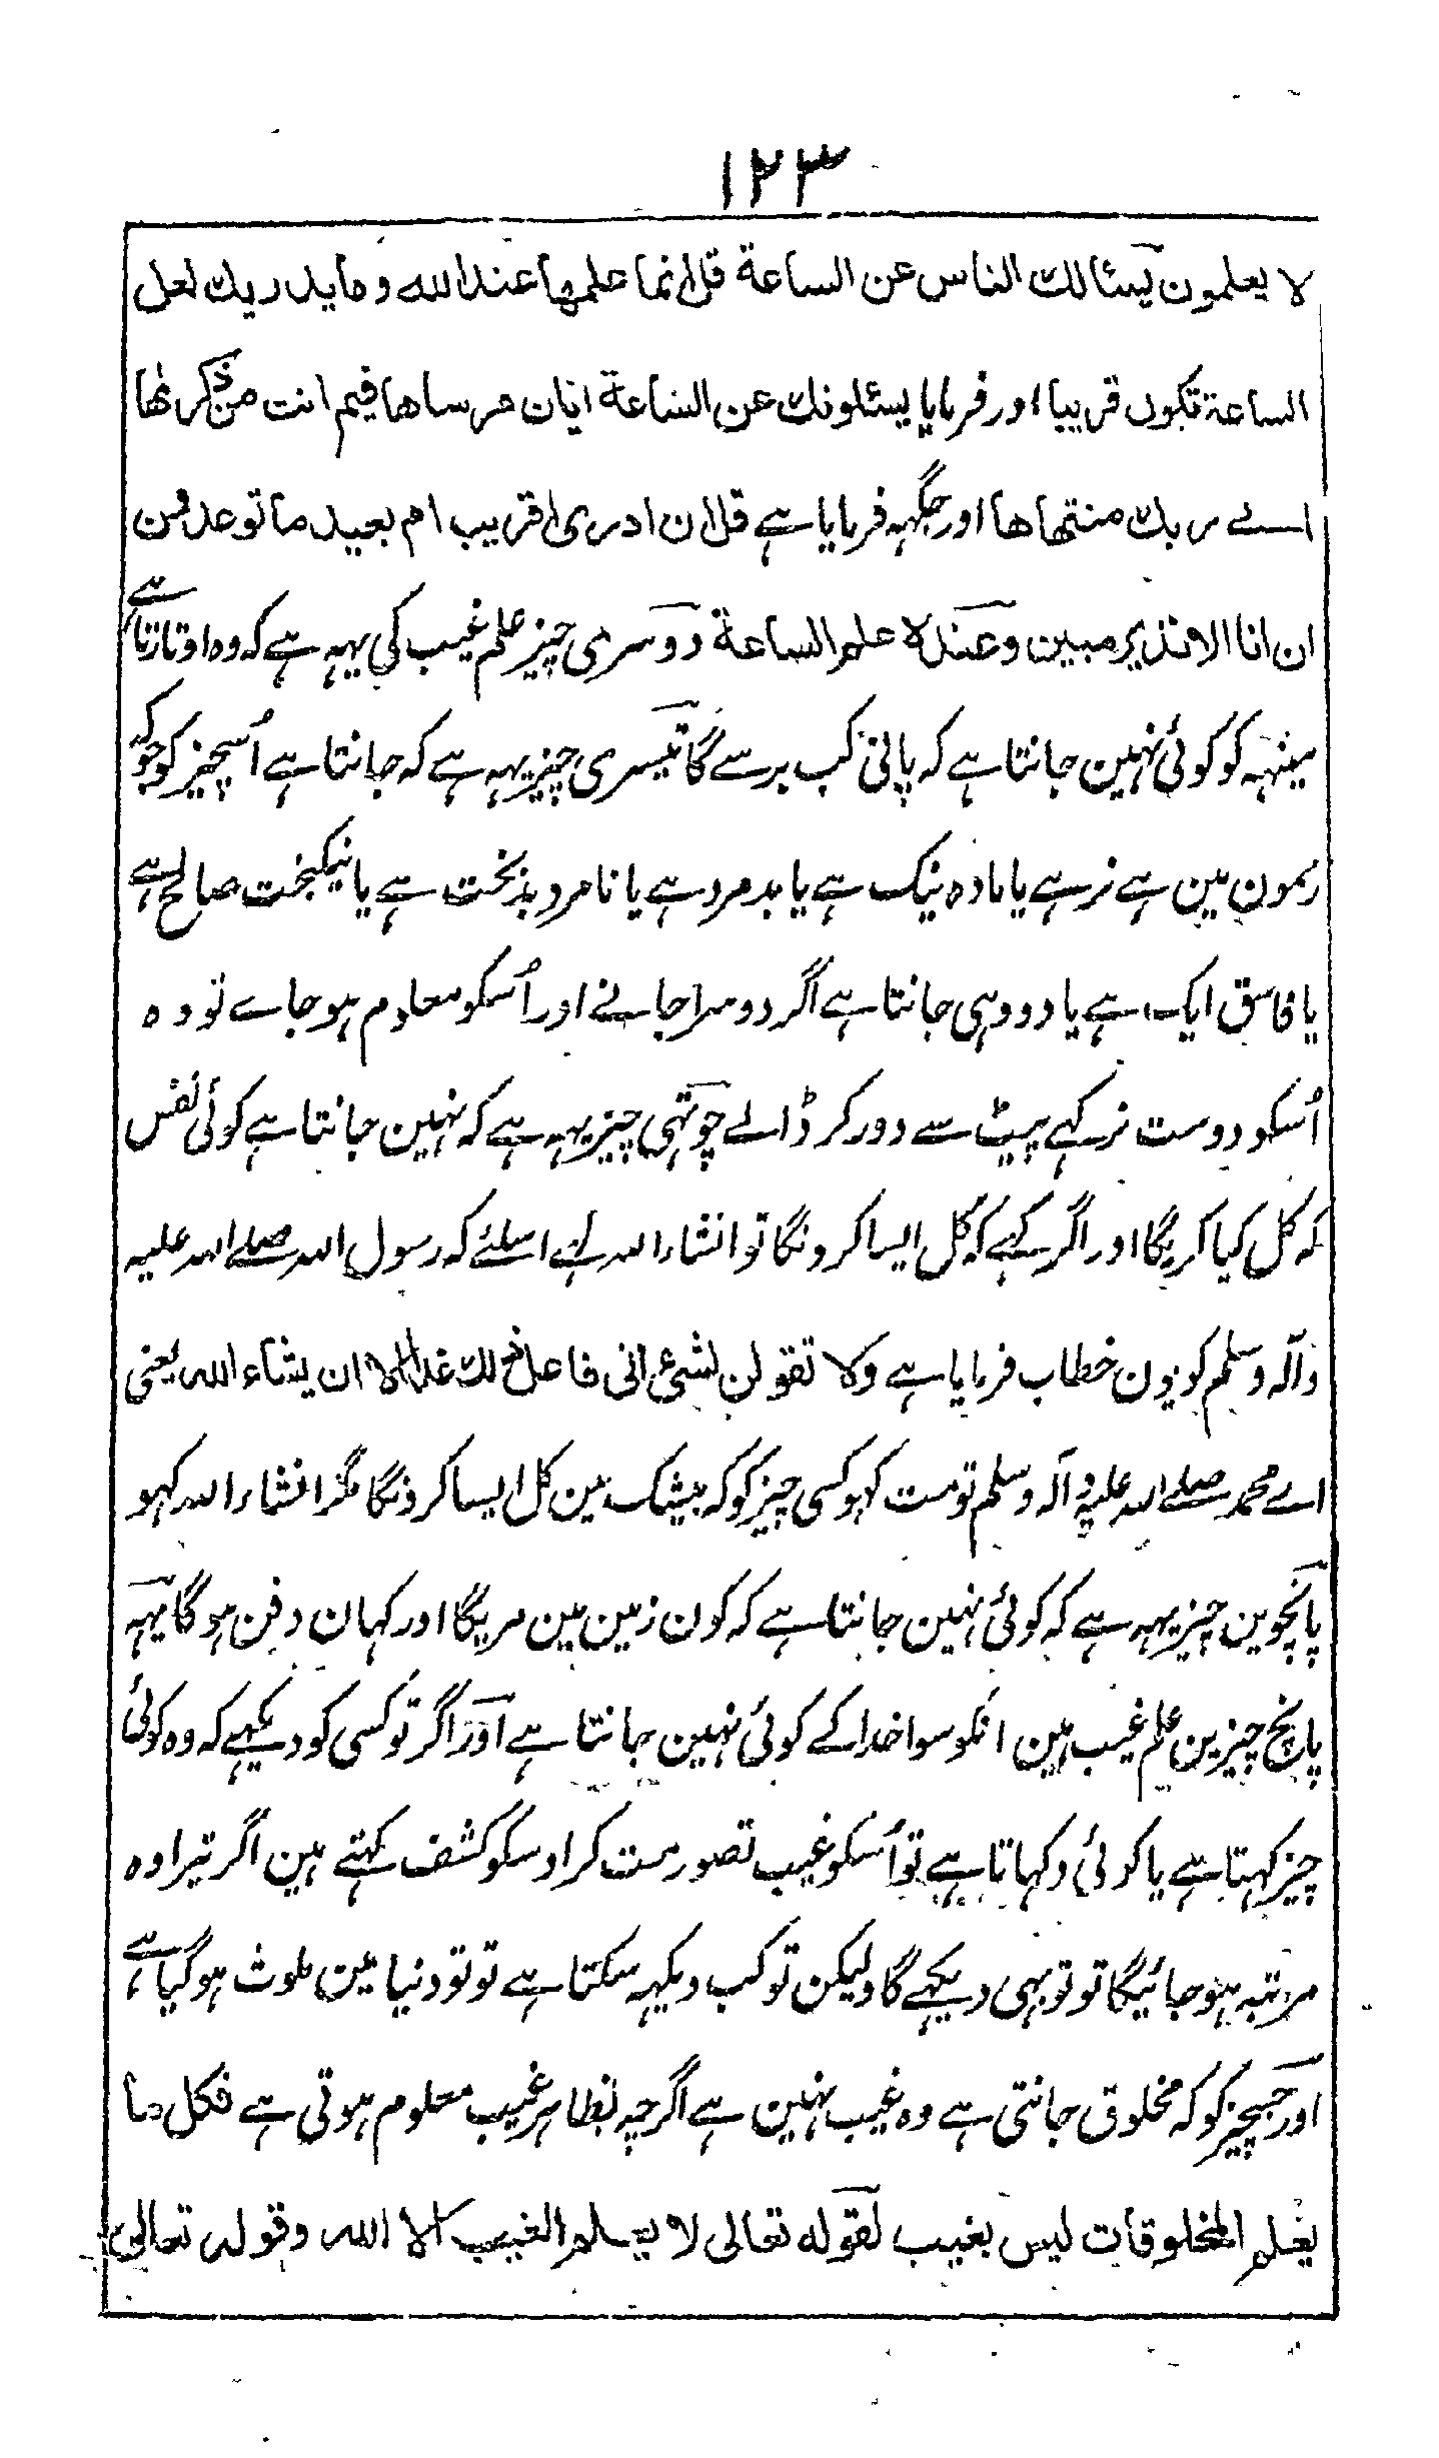 ۱۲۳
لا يعلمون يسئالك الناس عن الساعة قل انما علمها عند الله وما يدريك لعل
الساعة تكون قريبا اور فرمایا يسئلونك عن الساعة ايان مرساها فيم انت من ذكرٰها
الے ربك منتهاها اور جگہہ فرمایا ہے قل ان ادرى اقريب ام بعيد ما توعدون
ان انا الا نذير مبين وعنده علم الساعة دوسری چیز علم غیب کی یہہ ہے کہ وہ اوتارتا ہے
مینہہ کو کوئی نہین جانتا ہے کہ پانی کب برسے گا تیسری چیز یہہ ہے کہ جانتا ہے اُسچیز کو جو کہ
رحمون مین ہے نر ہے یا مادہ نیک ہے یا بد مرد ہے یا نامرد بدبخت ہے یا نیکبخت صالح ہے
یا فاسق ایک ہے یا دو وہی جانتا ہے اگر دوسرا جانے اور اُسکو معلوم ہو جاے تو وہ
اُسکو دوست نرکہے پیٹ سے دور کر ڈالے چوتہی چیز یہہ ہے کہ نہین جانتا ہے کوئی نفس
کہ کل کیا کریگا اور اگر کہے کہ کل ایسا کرونگا تو انشاء اللہ کہے اسلئے کہ رسول اللہ صلے اللہ علیہ
وآلہ وسلم کو یون خطاب فرمایا ہے ولا تقولن لشئ انى فاعل ذلك غدا الا ان يشاء الله یعنی
اے محمد صلے اللہ علیہ وآلہ وسلم تو مت کہو کسی چیز کو کہ بیشک مین کل ایسا کرونگا مگر انشاء اللہ کہو
پانچوین چیز یہہ ہے کہ کوئی نہین جانتا ہے کہ کون زمین مین مریگا اور کہان دفن ہوگا یہہ
پانچ چیزین علم غیب ہین انکو سوا خدا کے کوئی نہین جانتا ہے اور اگر تو کسی کو دیکہے کہ وہ کوئی
چیز کہتا ہے یا کوئی دکہاتا ہے تو اُسکو غیب تصور مت کر اوسکو کشف کہتے ہین اگر تیرا وہ
مرتبہ ہو جائیگا تو تو بہی دیکہے گا ولیکن تو کب دیکہہ سکتا ہے تو تو دنیا مین ملوث ہو گیا ہے،
اور جسچیز کو کہ مخلوق جانتی ہے وہ غیب نہین ہے اگرچہ بظاہر غیب معلوم ہوتی ہے فكل ما
يعلم المخلوقات ليس بغيب لقوله تعالى لا يعلم الغيب الا الله وقوله تعالى